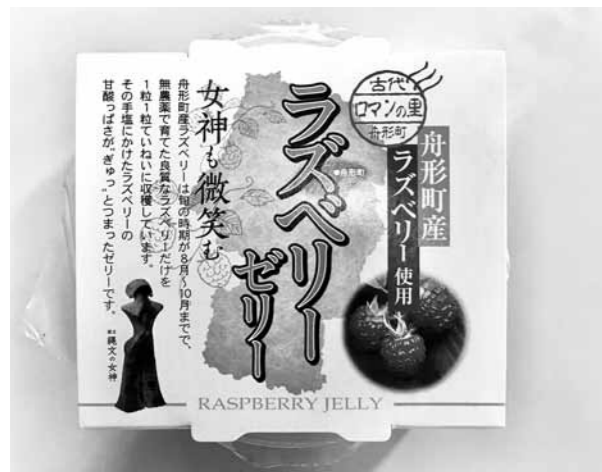 古代
ロマンの里
舟形町
舟形町産
ラズベリー使用
ラズベリー
ゼリー
●舟形町
女神も微笑む
舟形町産ラズベリーは旬の時期が8月〜10月までで、
無農薬で育てた良質なラズベリーだけを
1粒1粒ていねいに収穫しています。
その手塩にかけたラズベリーの
甘酸っぱさが“ぎゅっ”とつまったゼリーです。
縄文の女神
RASPBERRY JELLY